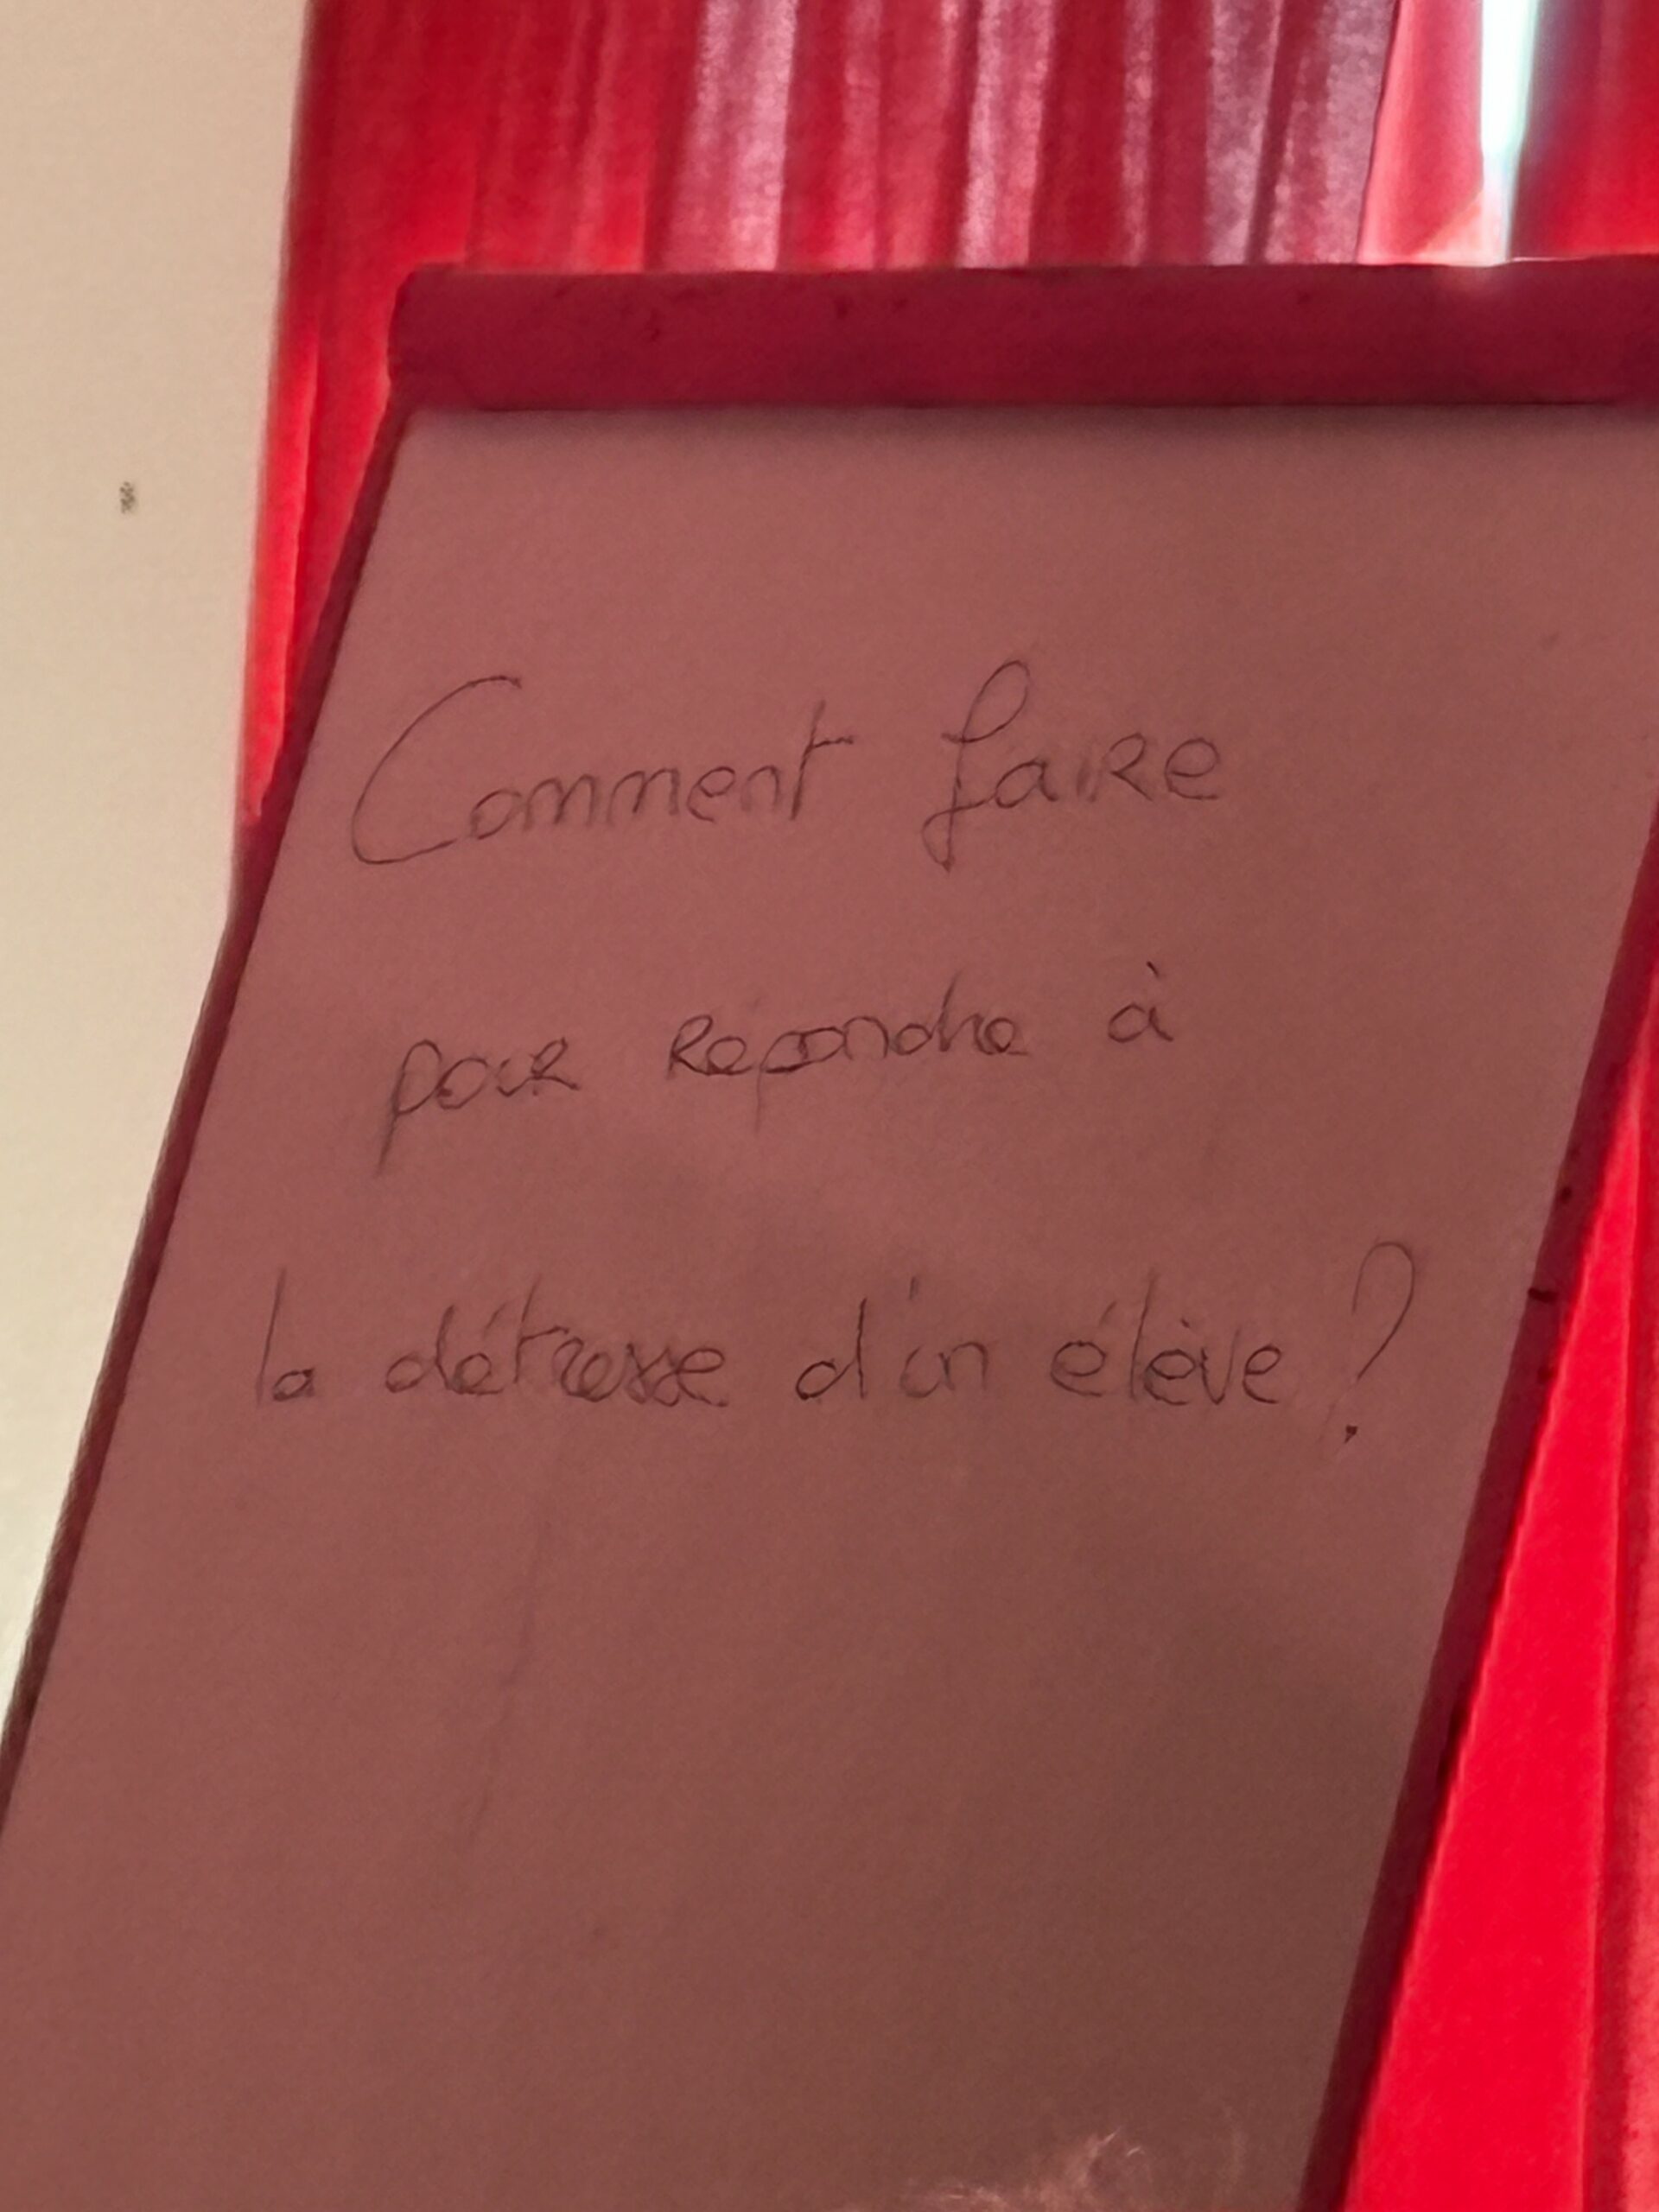 Comment faire
pour repondre à
la détresse d'un élève ?